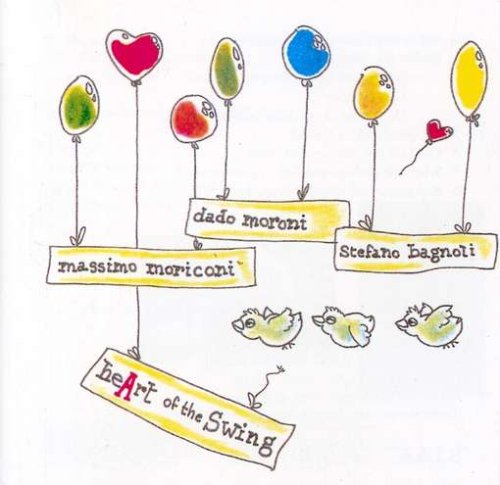 dado moroni
stefano bagnoli
massimo moriconi
heArt of the Swing